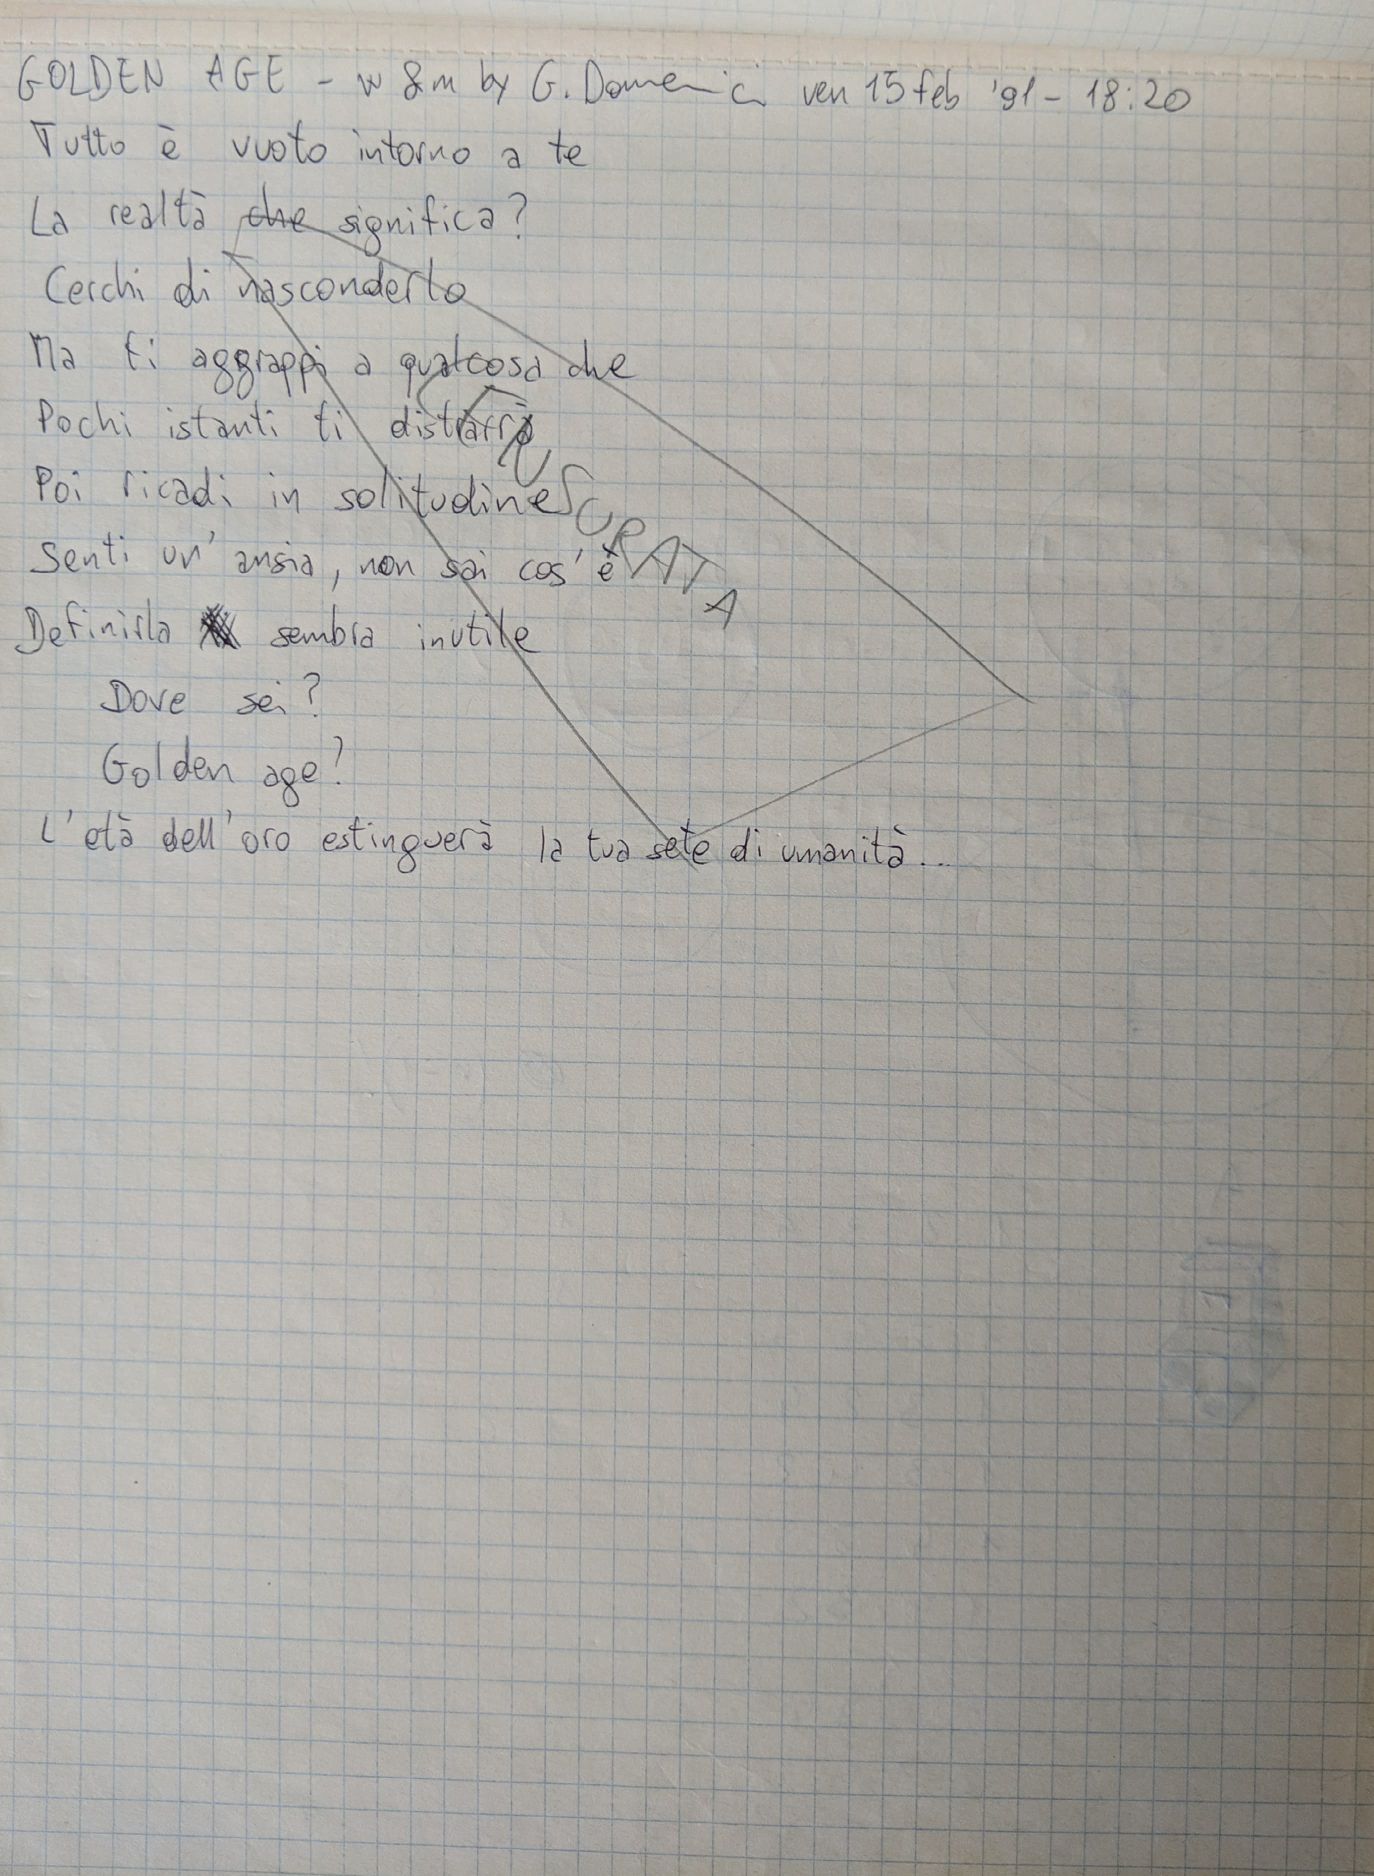 GOLDEN AGE - w & m by G. Domenici ven 15 feb '91 - 18:20
Tutto è vuoto intorno a te
La realtà che significa?
Cerchi di nasconderlo
Ma ti aggrappi a qualcosa che
Pochi istanti ti distrarrà
Poi ricadi in solitudine
Senti un' ansia, non sai cos' è
Definirla sembra inutile
Dove sei?
Golden age?
L'età dell'oro estinguerà la tua sete di umanità...
CENSURATA